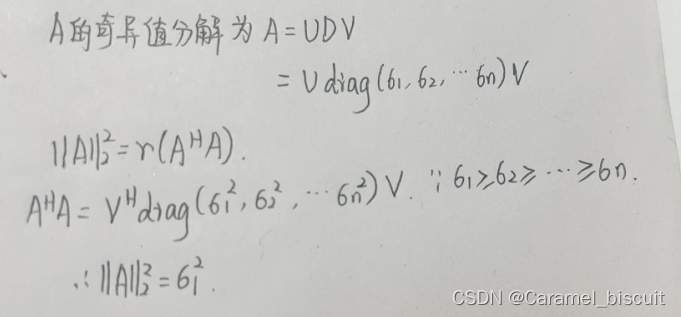 A的奇异值分解为 A=UDV
=Udiag(σ₁,σ₂,⋯σn)V
||A||₂²=r(AᴴA).
AᴴA=Vᴴdiag(σ₁²,σ₂²,⋯σn²)V. ∵σ₁≥σ₂≥⋯≥σn.
∴||A||₂²=σ₁².
CSDN @Caramel_biscuit